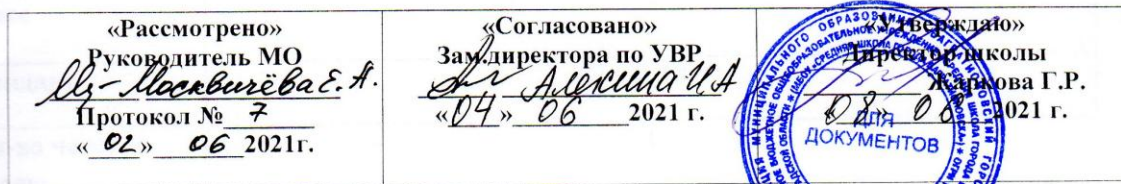 «Рассмотрено»
Руководитель МО
Москвичёва Е. А.
Протокол № 7
«02» 06 2021г.
«Согласовано»
Зам.директора по УВР
Алекина И.А
«04» 06 2021 г.
«Утверждаю»
Директор школы
Жаркова Г.Р.
«08» 06 2021 г.
МУНИЦИПАЛЬНОГО ОБРАЗОВАНИЯ
ДЛЯ
ДОКУМЕНТОВ